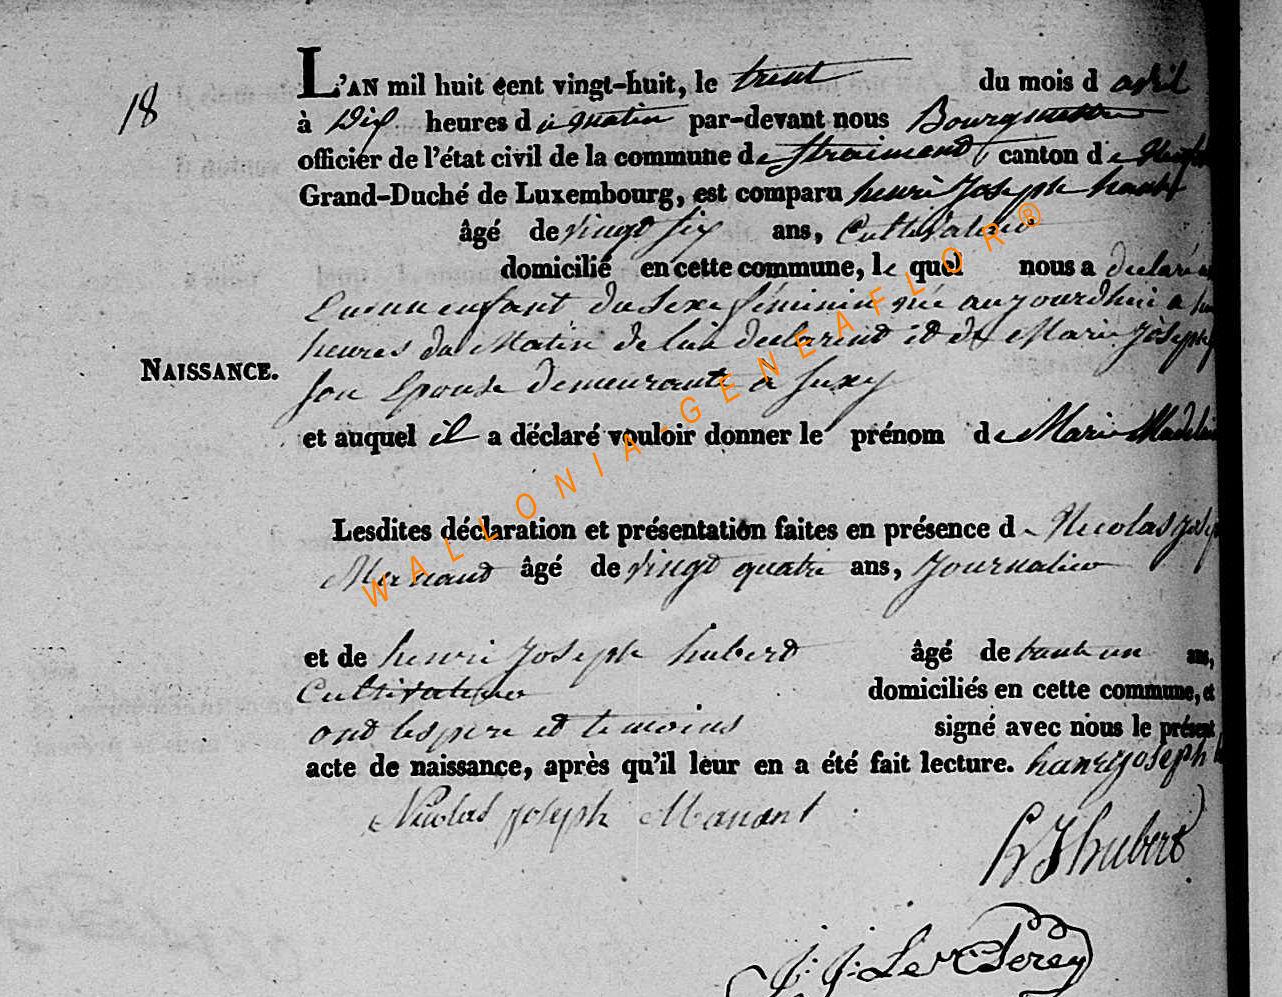 L'AN mil huit cent vingt-huit, le trent du mois d avril
18
à Dix heures d u Matin par-devant nous Bourgmestre
officier de l'état civil de la commune de Straimont, canton de
Grand-Duché de Luxembourg, est comparu henri Joseph
âgé de vingt six ans, Cultivateur
domicilié en cette commune, le quel nous a declaré
enfant du Sexe féminin née aujourdhui a
heures du Matin de lui declarent et de Marie Joseph
NAISSANCE.
son Epouse demeurante a Suxy
et auquel il a déclaré vouloir donner le prénom de Marie
Lesdites déclaration et présentation faites en présence de Nicolas
âgé de vingt quatre ans, Journalier
et de henri Joseph huberd âgé de trente un ans,
Cultivateur domiciliés en cette commune, et
ont les pere et temoins signé avec nous le présent
acte de naissance, après qu'il leur en a été fait lecture. hanry joseph
Nicolas joseph Manant
h J hubert
WALLONIA-GENEAFLOR®